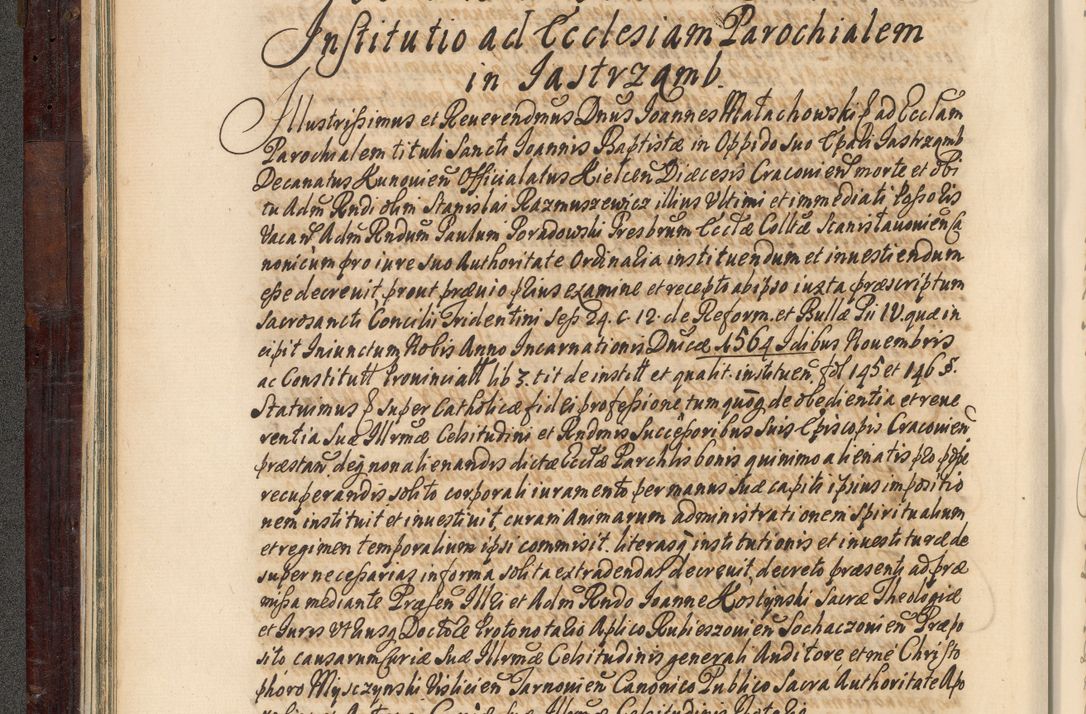 Institutio ad Ecclesiam Parochialem
in Jastrząmb.
Illustrissimus et Reverendmus Dnus Joannes Małachowski p ad Ecclam
Parochialem tituli Sancti Joannis Baptistæ in Oppido suo Epali Jastrząmb
Decanatus Kunovien Officialatus Kielcen Diæcesis Cracovien morte et obi
tu Adm Rndi olim Stanislai Razmuszewicz illius Ultimi et immediati Possoris
vacan Adm Rndum Paulum Poradowski Presbrum Ecclæ Collæ Stanislavovien Ca
nonicum pro iure suo Authoritate Ordinaria instituendum et investiendum
esse decrevit, prout prævio prius examine et recepto ab ipso iuxta præscriptum
Sacrosancti Concilii Tridentini Sess 24. c. 12. de Reform. et Bullæ Pii IV. quæ in
cipit Iniunctum Nobis Anno Incarnationis Dnicæ 1564 Idibus Novembris
ac Constitutt Provinciall lib 3. tit de institt et qualit. instituen fol 145 et 146 s.
Statuimus p super Catholicæ fidei professione tum quoq de obedientia et reve
rentia suæ Illrmæ Celsitudini et Rndmis Successoribus suis Episcopis Cracovien
præstan deq non alienandis dictæ Ecclæ Parchlis bonis quinimo alienatis pro posse
recuperandis solito corporali iuramento per manus suæ capiti ipsius impositio
nem instituit et investivit, curam Animarum administrationem Spiritualium
et regimen temporalium ipsi commisit. literasq institutionis et investituræ de
super necessarias in forma solita extradendas decrevit, decreto præsenti ad præ
missa mediante Præsen Illri et Adm Rndo Joanne Hostynski Sacræ Theologiæ
et Iuris Utriusq Doctore Protonotario Aplico Rubieszovien Sochaczovien Præpo
sito causarum Curiæ Suæ Illrmæ Celsitudinis generali Auditore et me Christo
phoro Mysczynski Vislicien Tarnovien Canonico Publico Sacra Authoritate Apo